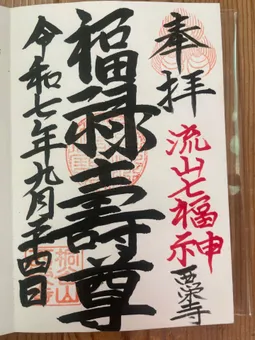 奉拝
流山七福神
西栄寺
福禄壽尊
令和七年九月二十四日